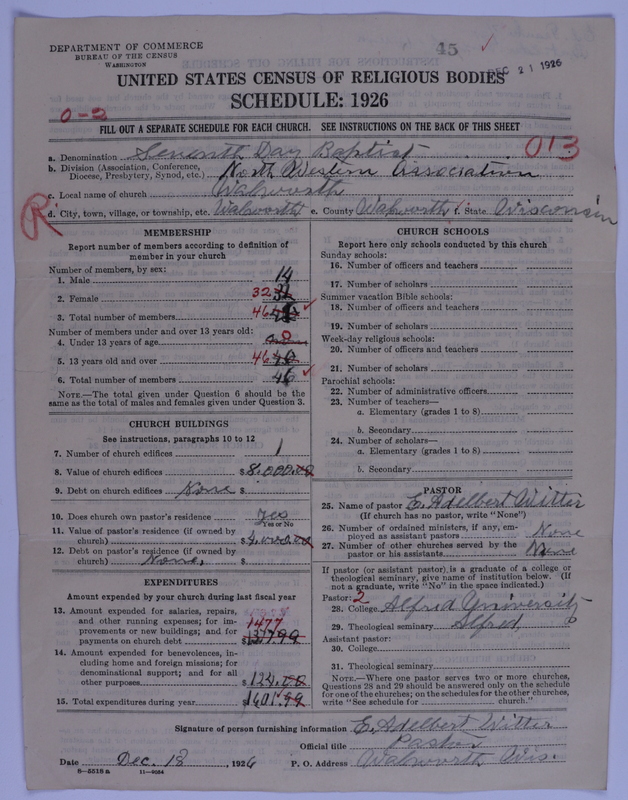 DEPARTMENT OF COMMERCE
BUREAU OF THE CENSUS
WASHINGTON
45
DEC 21 1926
UNITED STATES CENSUS OF RELIGIOUS BODIES
SCHEDULE: 1926
0-2
FILL OUT A SEPARATE SCHEDULE FOR EACH CHURCH. SEE INSTRUCTIONS ON THE BACK OF THIS SHEET
013
a. Denomination Seventh Day Baptist
b. Division (Association, Conference, Diocese, Presbytery, Synod, etc.) North Western Association
c. Local name of church Walworth
R
d. City, town, village, or township, etc. Walworth e. County Walworth f. State Wisconsin
MEMBERSHIP
Report number of members according to definition of
member in your church
Number of members, by sex:
1. Male 14
2. Female 32
3. Total number of members 46
Number of members under and over 13 years old:
4. Under 13 years of age 0
5. 13 years old and over 46
6. Total number of members 46
NOTE.—The total given under Question 6 should be the
same as the total of males and females given under Question 3.
CHURCH BUILDINGS
See instructions, paragraphs 10 to 12
7. Number of church edifices 1
8. Value of church edifices $8,000.00
9. Debt on church edifices None $
10. Does church own pastor's residence Yes
Yes or No
11. Value of pastor's residence (if owned by
church) $4,000.00
12. Debt on pastor's residence (if owned by
church) None, $
EXPENDITURES
Amount expended by your church during last fiscal year
13. Amount expended for salaries, repairs,
and other running expenses; for im-
provements or new buildings; and for
payments on church debt 1477
$
14. Amount expended for benevolences, in-
cluding home and foreign missions; for
denominational support; and for all
other purposes $122.00
15. Total expenditures during year $1601.99
CHURCH SCHOOLS
Report here only schools conducted by this church
Sunday schools:
16. Number of officers and teachers
17. Number of scholars
Summer vacation Bible schools:
18. Number of officers and teachers
19. Number of scholars
Week-day religious schools:
20. Number of officers and teachers
21. Number of scholars
Parochial schools:
22. Number of administrative officers
23. Number of teachers—
a. Elementary (grades 1 to 8)
b. Secondary
24. Number of scholars—
a. Elementary (grades 1 to 8)
b. Secondary
PASTOR
25. Name of pastor E. Adelbert Witter
(If church has no pastor, write "None")
26. Number of ordained ministers, if any, em-
ployed as assistant pastors None
27. Number of other churches served by the
pastor or his assistants None
If pastor (or assistant pastor) is a graduate of a college or
theological seminary, give name of institution below. (If
not a graduate, write "No" in the space indicated.)
Pastor: 2
28. College Alfred University
29. Theological seminary Alfred,
Assistant pastor:
30. College
31. Theological seminary
NOTE.—Where one pastor serves two or more churches,
Questions 28 and 29 should be answered only on the schedule
for one of the churches; on the schedules for the other churches,
write "See schedule for church."
Signature of person furnishing information E. Adelbert Witter
Official title Pastor
Date Dec. 18, 1926 P. O. Address Walworth Wis.
8—5518 a 11—9064